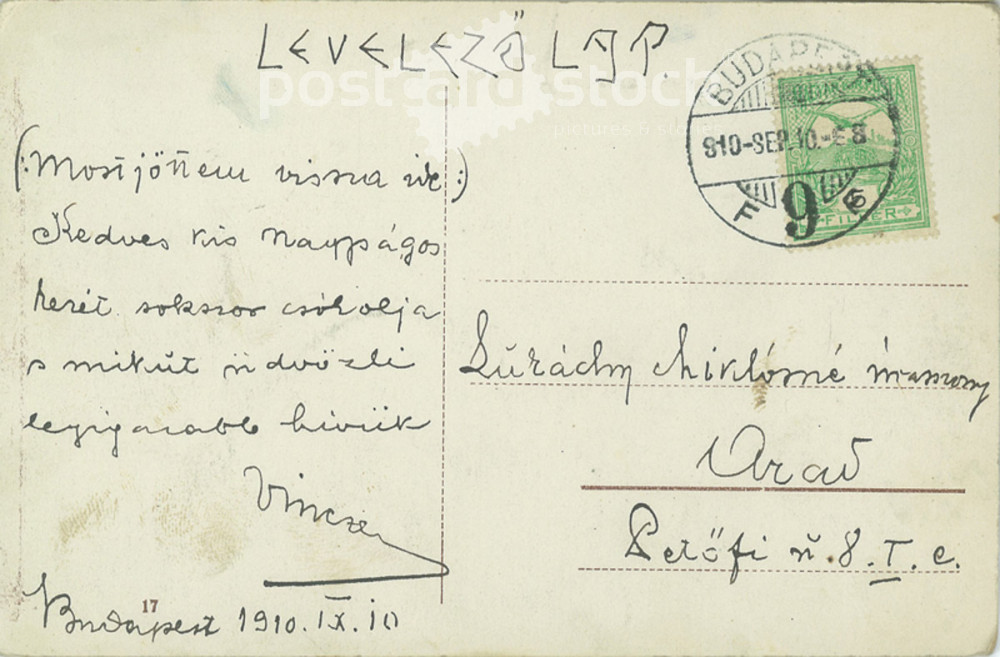 LEVELEZŐ LAP.
postcardstock
pictures & stories
BUDAPEST
910-SEP.10.
9
FILLÉR
(: Most jöttem vissza ide :)
Kedves kis Nagyságos
kezét sokszor csókolja
s mikút üdvözli
legigazabb hívük
Vincze
Budapest 1910. IX. 10
17
Miklósné
Arad
Petőfi u. 8. I. e.